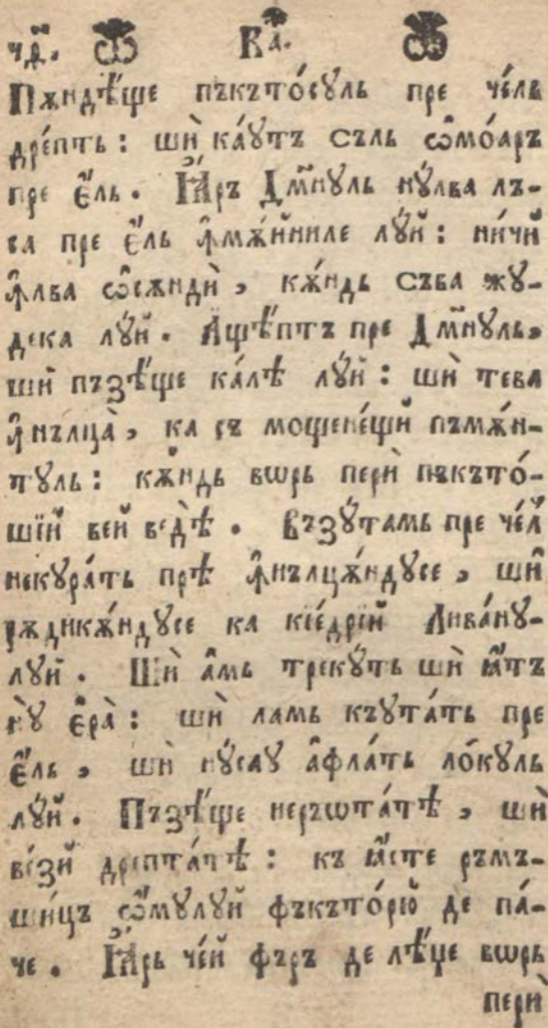 чд҃.   Ка҃.
Пѫндѣ́ще пъкъто́сꙋль пре че́ль
дре́пть : шѝ ка́ꙋтъ съль ѡ҆мо́аръ
пре є҆́ль . Ꙗ҆́ръ Дм҃нꙋль нꙋ́лва лъ-
са пре є҆́ль ꙟ҆мѫ́йниле лꙋ́й : ни́чй
ꙟ҆лва ѡ҆сѫндѝ , кѫ́ндь съва жꙋ-
дека лꙋ́й . А҆щѣ́птъ пре Дм҃нꙋль ,
шѝ пъзѣ́ще ка́лѣ лꙋ́й : шѝ тева
ꙟ҆нълца̀ , ка съ мощене́щй пъмѫ́н-
тꙋль : кѫ́ндь вѡрь перѝ пъкъто́-
шїй вей ведѣ̀ . Възꙋ́тамь пре че́л
некꙋра́ть прѣ ꙟ҆нълцѫ́ндꙋсе , шѝ
рѫдикѫ́ндꙋсе ка кїе́дрїй Лива́нꙋ-
лꙋй . Шѝ а҆мь трекꙋ́ть шѝ ꙗ҆тъ
нꙋ є҆ра̀ : шѝ ламь къꙋта́ть пре
є҆́ль , шѝ нꙋ́саꙋ а҆фла́ть ло́кꙋль
лꙋ́й . Пъзѣ́ще неръѡта́тѣ , шѝ
ве́зй дрепта́тѣ : къ ꙗ҆́сте ръмъ-
ши́цъ ѡ҆́мꙋлꙋй фъкъто́рю҆ де па́-
че . Ꙗ҆́рь че́й фъръ де лѣ́ще вѡрь
перѝ